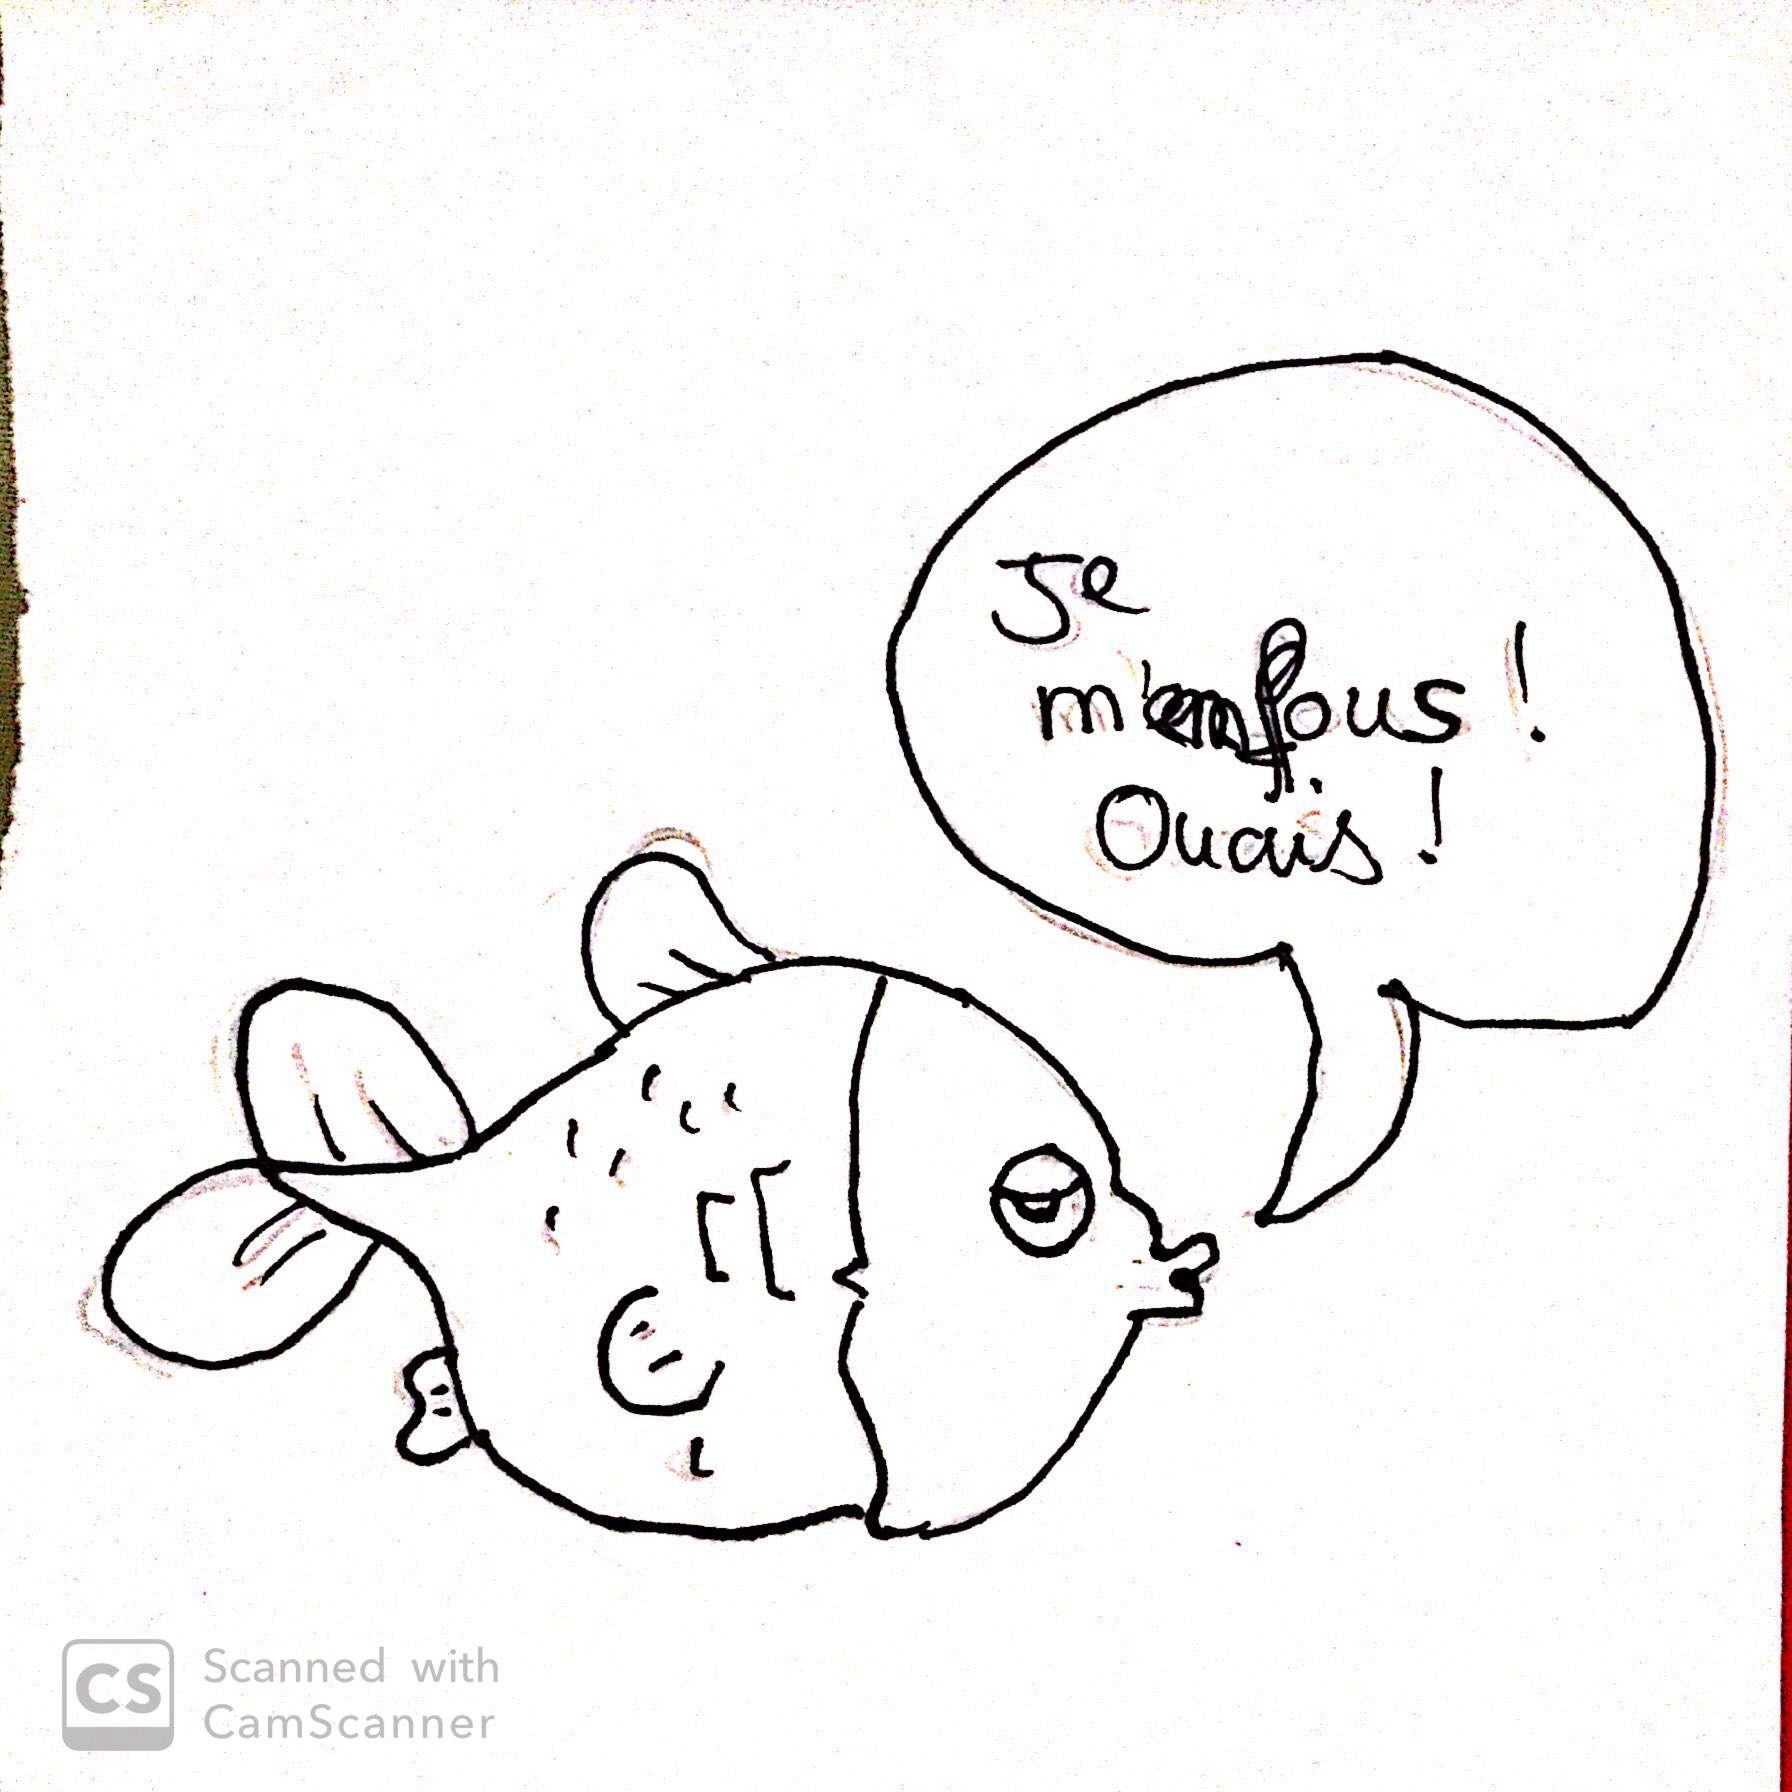 Je
m'enfous !
Ouais !
CS Scanned with
CamScanner